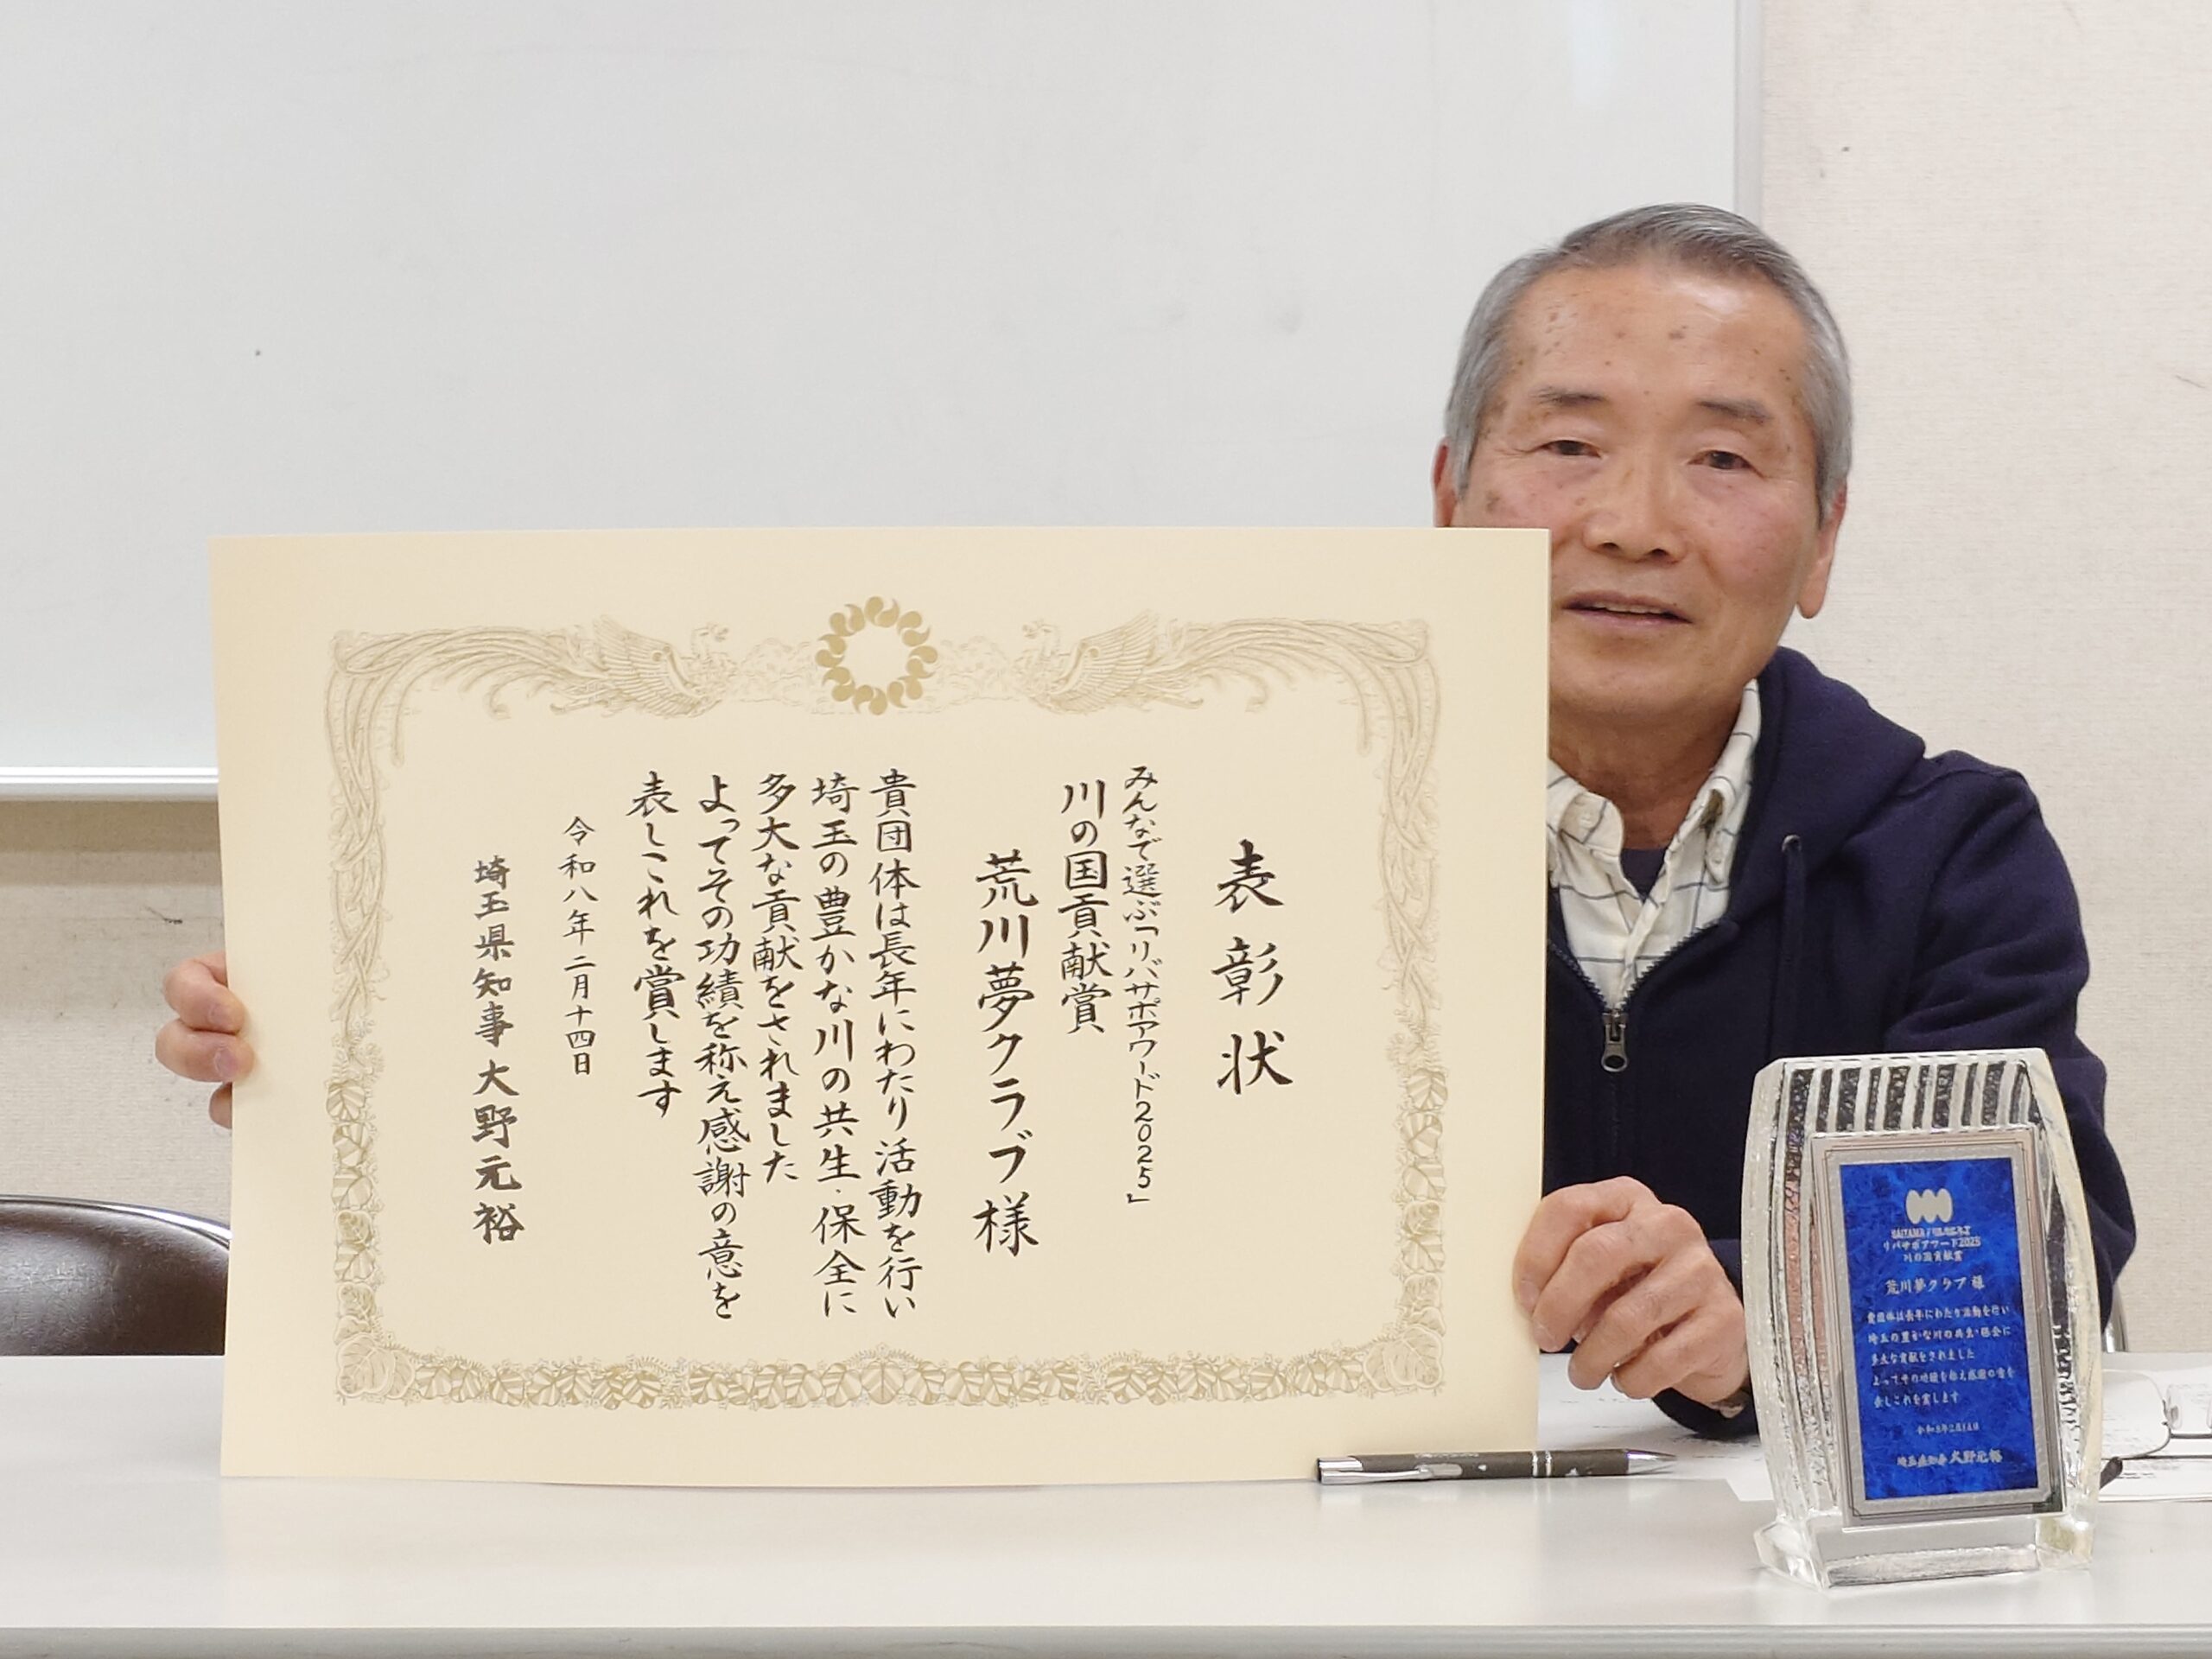 表彰状
みんなで選ぶ「リバサポアワード2025」
川の国貢献賞
荒川夢クラブ様
貴団体は長年にわたり活動を行い
埼玉の豊かな川の共生・保全に
多大な貢献をされました
よってその功績を称え感謝の意を
表しこれを賞します
令和八年二月十四日
埼玉県知事 大野元裕
リバサポアワード2025
川の国貢献賞
荒川夢クラブ 様
貴団体は長年にわたり活動を行い
埼玉の豊かな川の共生・保全に
多大な貢献をされました
よってその功績を称え感謝の意を
表しこれを賞します
令和8年2月14日
埼玉県知事 大野元裕